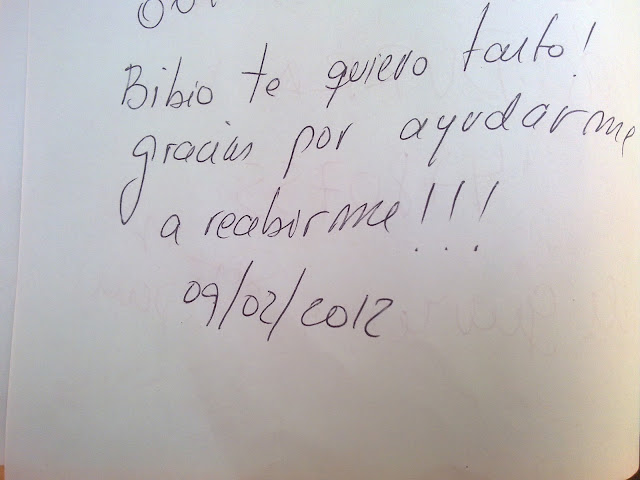 Bibio te quiero tanto!
gracias por ayudarme
a recebirme!!!
09/02/2012